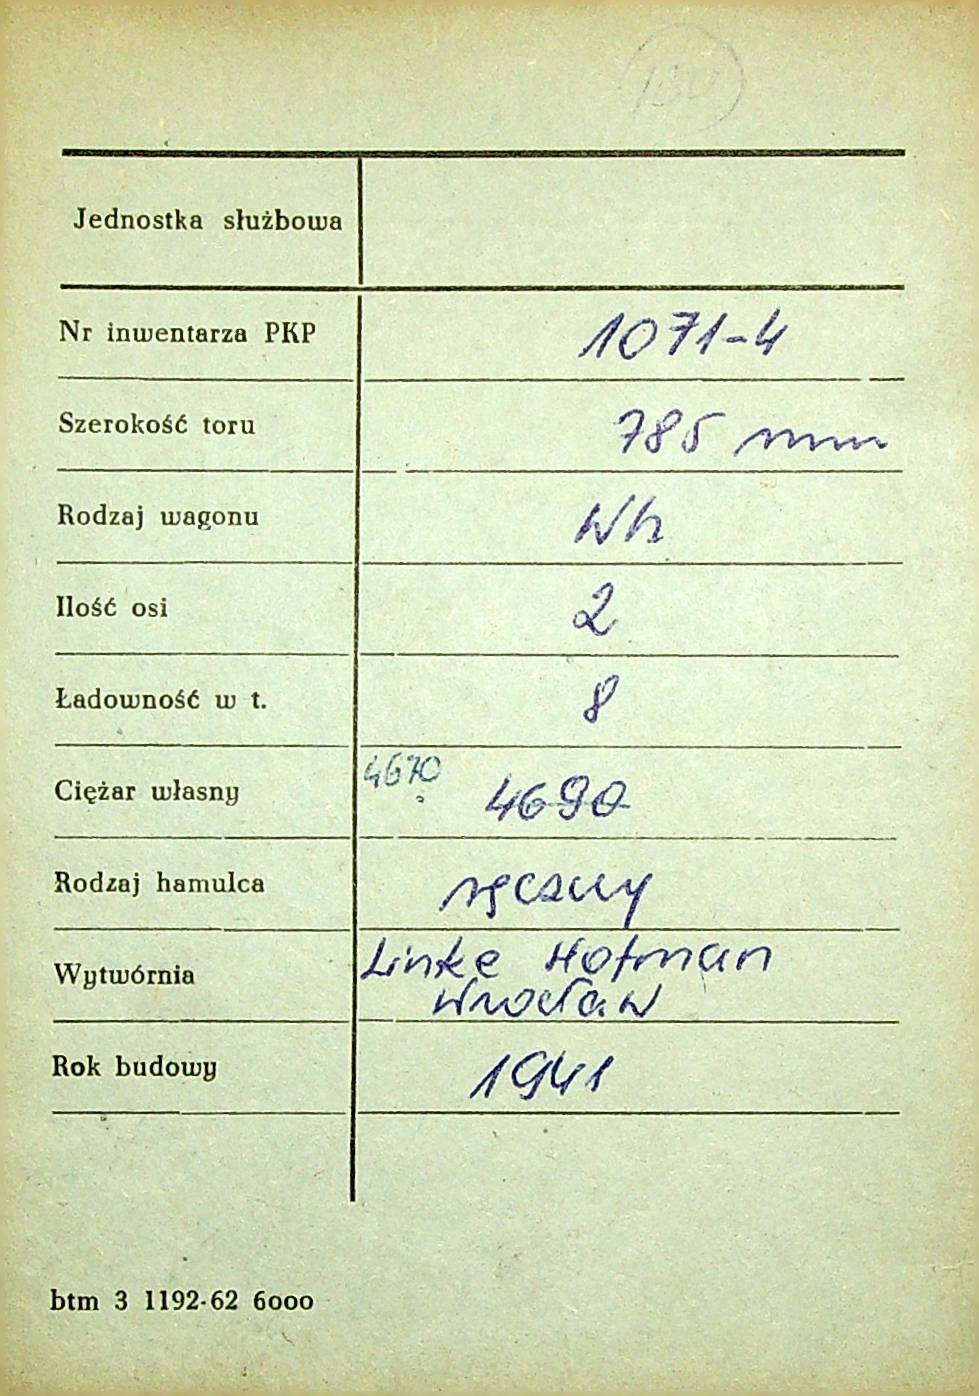 Jednostka służbowa
Nr inwentarza PKP 1071-4
Szerokość toru 785 mm
Rodzaj wagonu Wh
Ilość osi 2
Ładowność w t. 8
4670
Ciężar własny 4690
Rodzaj hamulca ręczny
Wytwórnia Linke Hofman
Wrocław
Rok budowy 1941
btm 3 1192-62 6000